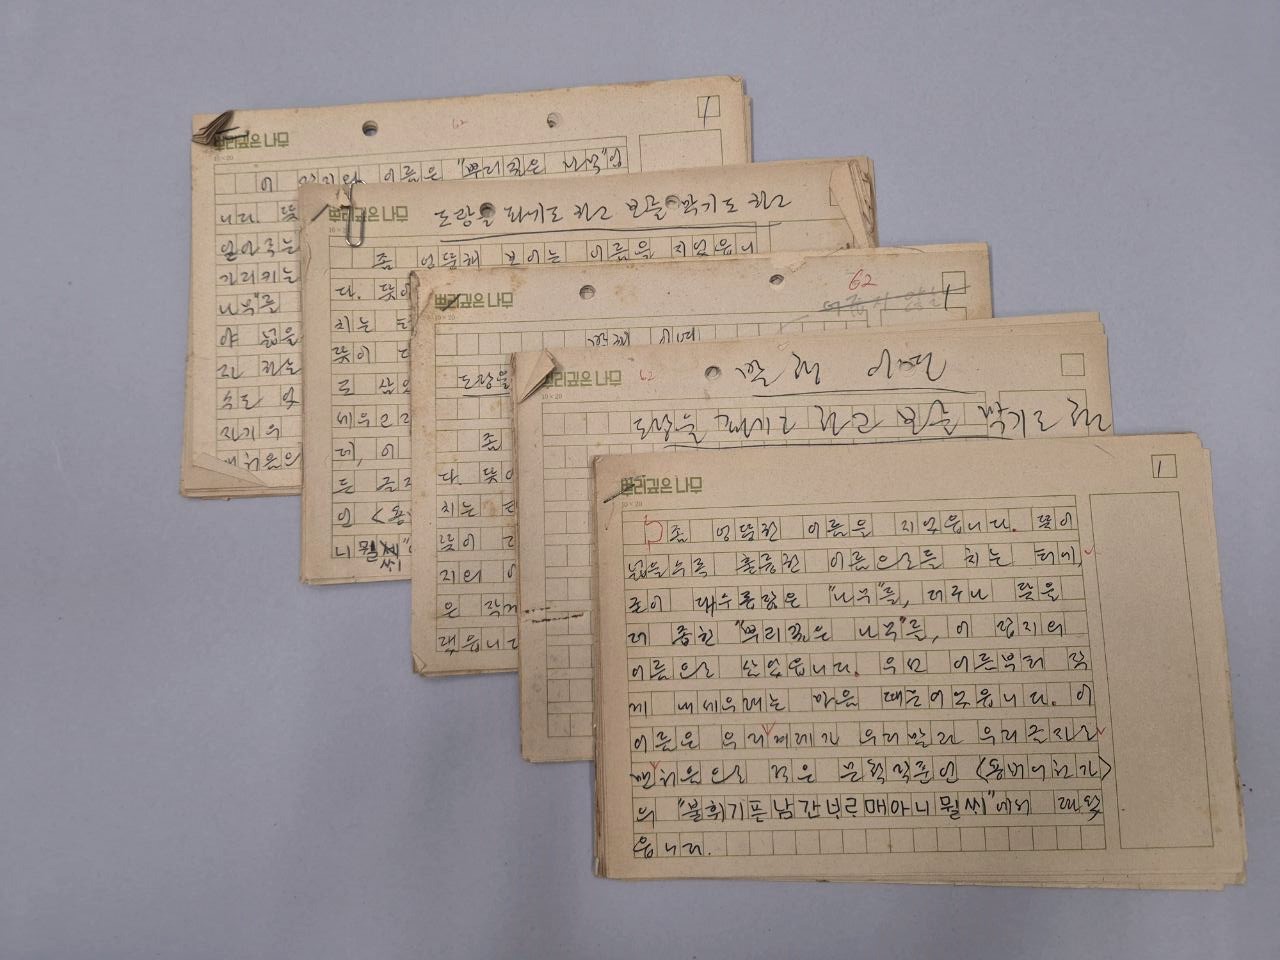 뿌리깊은 나무
10×20
62
1
이 이름은 "뿌리 깊은 나무"입
니다. 뜻
가리키는
나무"를
야 넓을
자기의
뿌리깊은 나무
도랑을 파기도 하고 보를 막기도 하고
좀 엉뚱해 보이는 이름을 지었읍니
다. 뜻이
치는 터
뜻이 더
로 삼았
세우고
데, 이
든 글자
인 <용
니뮐씨"
씨
뿌리깊은 나무
10×20
62
1
깔래 이며
도랑을
좀
다. 뜻이
치는 터
뜻이 더
지의 이
은 작게
랬읍니다
뿌리깊은 나무
10×20
62
도랑을 파기도 하고 보를 막기도 하고
뿌리깊은 나무
10×20
1
좀 엉뚱한 이름을 지었읍니다. 뜻이
넓을수록 훌륭한 이름으로들 치는 터에,
굳이 대수롭잖은 "나무"를, 더구나 뜻을
더 좁힌 "뿌리 깊은 나무"를, 이 잡지의
이름으로 삼았읍니다. 우선 이름부터 작
게 내세우려는 마음 때문이었읍니다. 이
이름은 우리 겨레가 우리말과 우리 글자로
맨처음으로 적은 문학작품인 <용비어천가>
의 "불휘기픈남간ᄇᆞᄅᆞ매아니뮐씨"에서 따왔
읍니다.